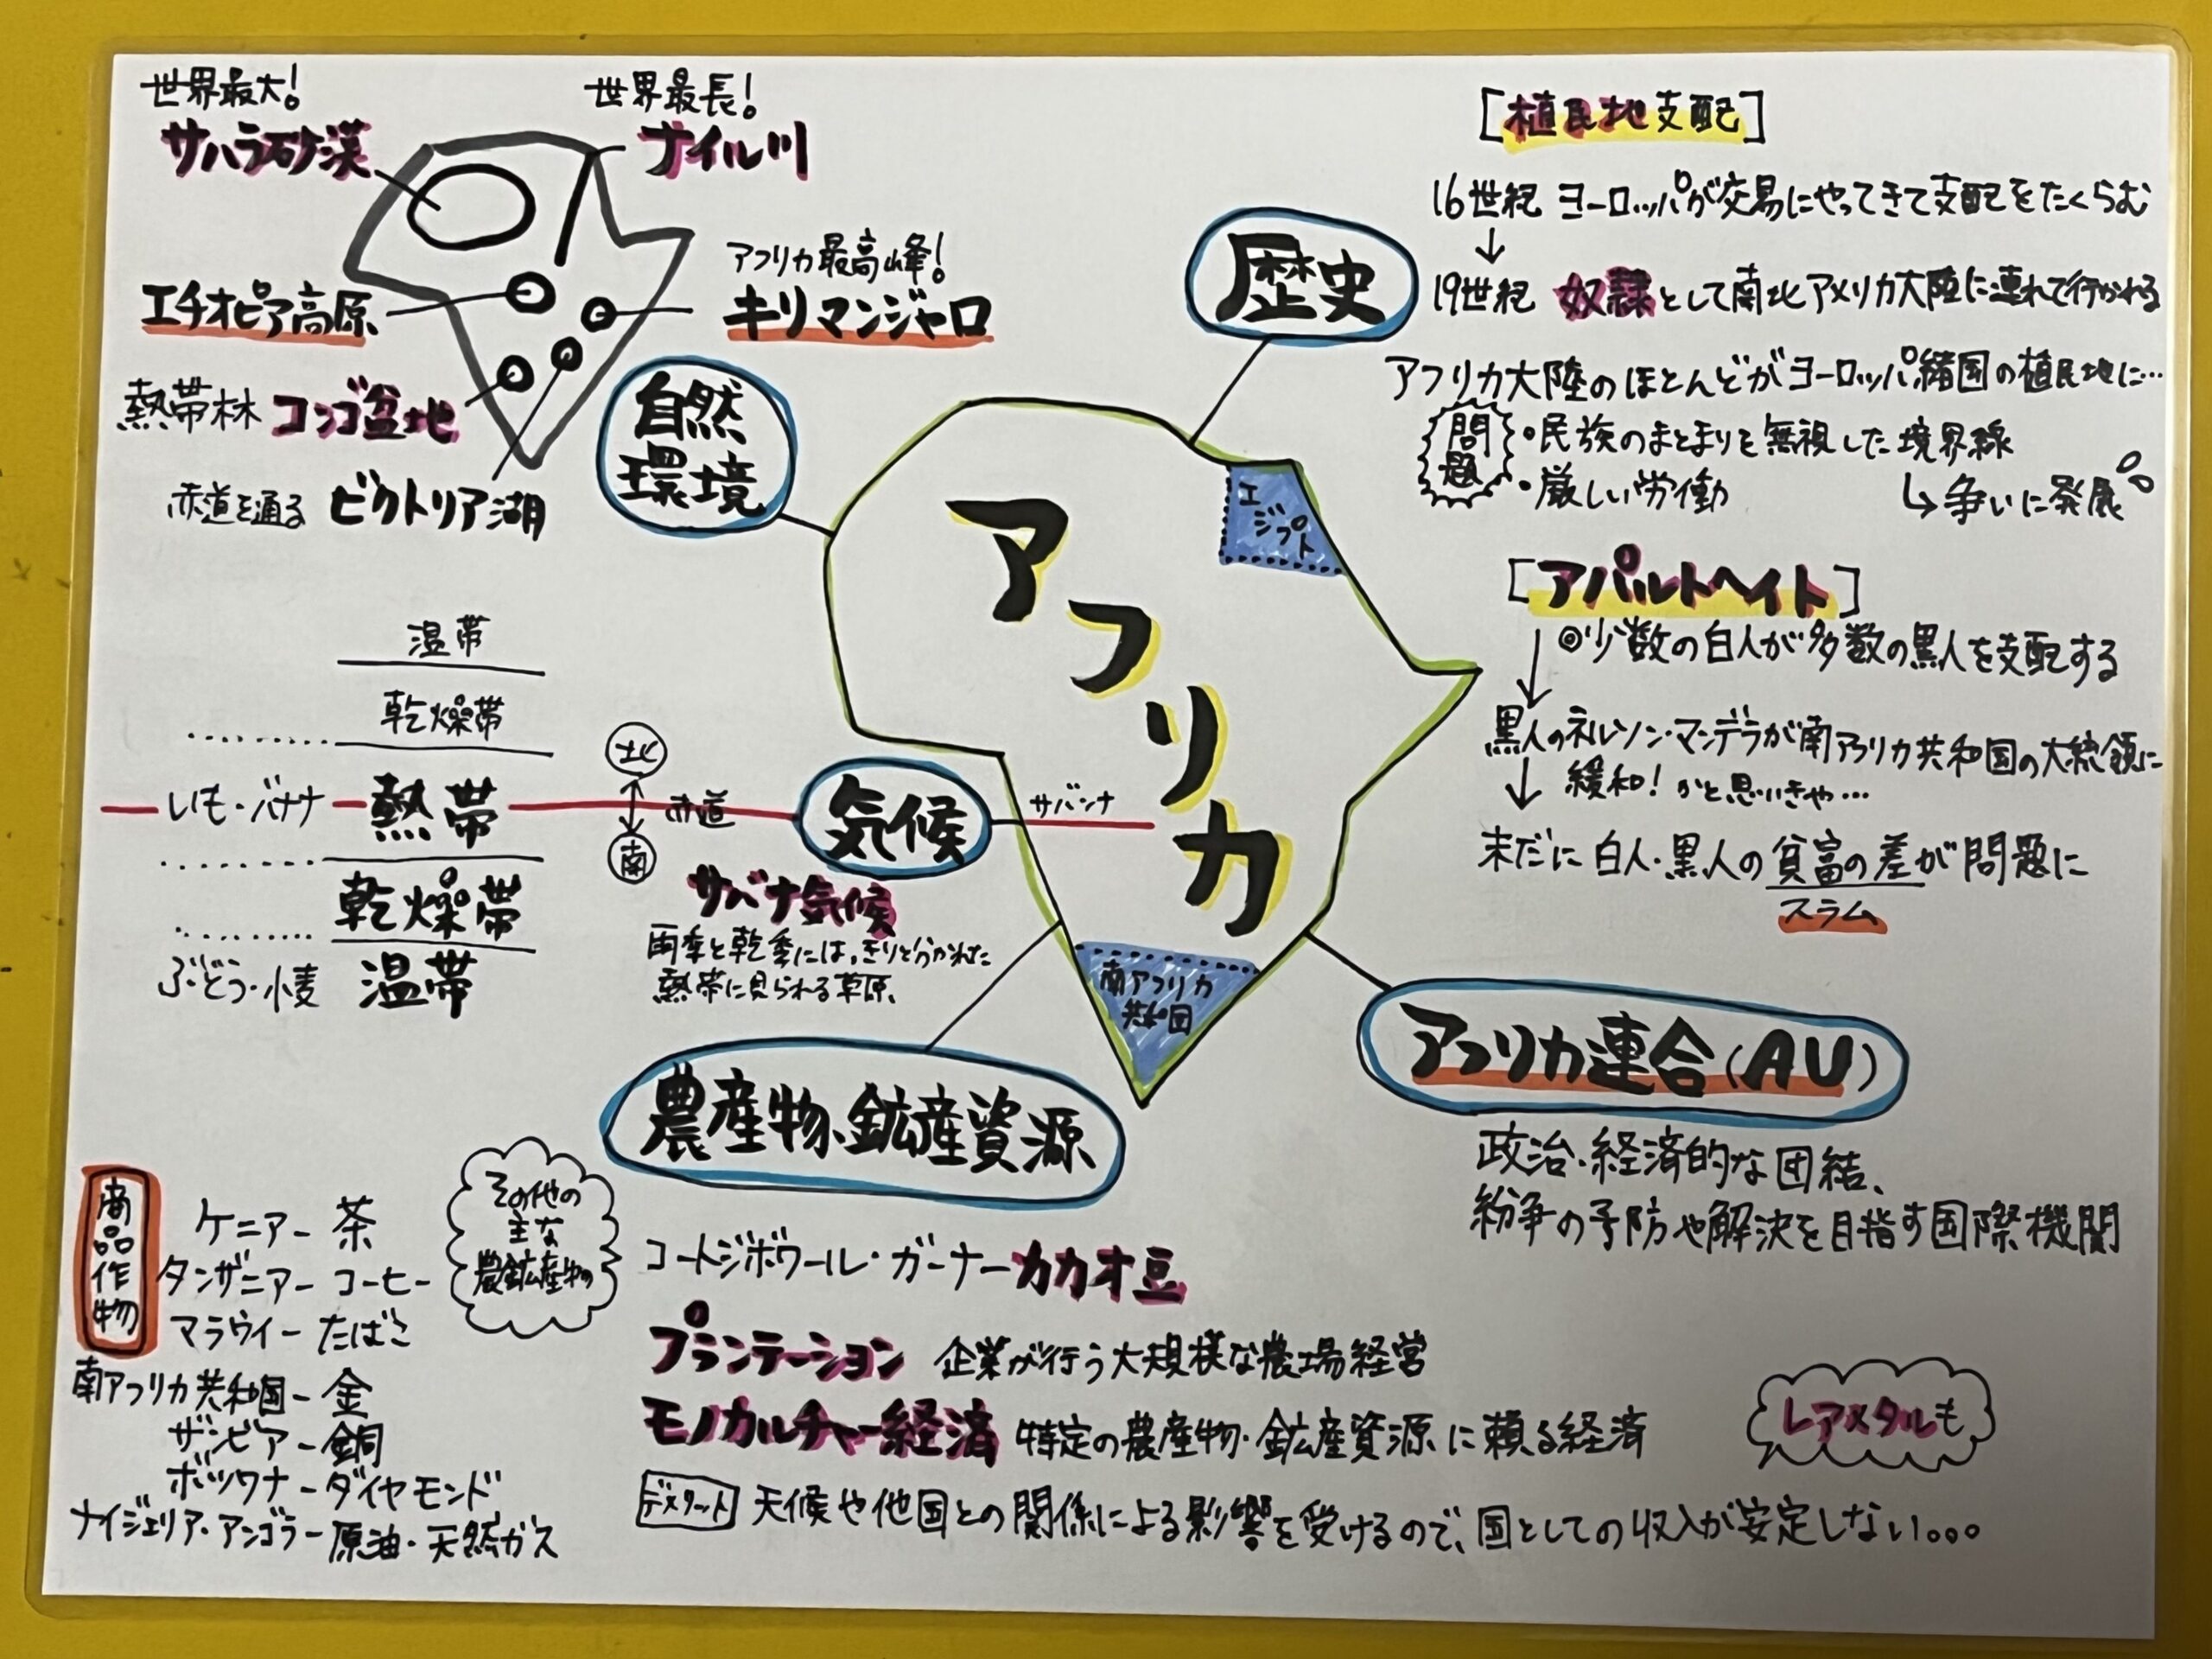 世界最大!
サハラ砂漠
世界最長!
ナイル川
エチオピア高原
アフリカ最高峰!
キリマンジャロ
熱帯林 コンゴ盆地
赤道を通る ビクトリア湖
自然
環境
歴史
[植民地支配]
16世紀 ヨーロッパが交易にやってきて支配をたくらむ
↓
19世紀 奴隷として南北アメリカ大陸に連れて行かれる
アフリカ大陸のほとんどがヨーロッパ緒国の植民地に…
問題
・民族のまとまりを無視した境界線
・厳しい労働
↳争いに発展
[アパルトヘイト]
◎少数の白人が多数の黒人を支配する
↓
黒人のネルソン・マンデラが南アフリカ共和国の大統領に
↓ 緩和! かと思いきや…
未だに白人・黒人の貧富の差が問題に
スラム
アフリカ
エジプト
南アフリカ
共和国
サバンナ
気候
温帯
乾燥帯
いも・バナナ 熱帯
北
赤道
南
乾燥帯
ぶどう・小麦 温帯
サバナ気候
雨季と乾季には、きりと分かれた
熱帯に見られる草原、
アフリカ連合(AU)
政治・経済的な団結、
紛争の予防や解決を目指す国際機関
農産物・鉱産資源
商品作物
ケニアー茶
タンザニアーコーヒー
マラウイーたばこ
南アフリカ共和国-金
ザンビアー銅
ボツワナ-ダイヤモンド
ナイジェリア・アンゴラー原油・天然ガス
その他の
主な
農鉱産物
コートジボワール・ガーナーカカオ豆
プランテーション 企業が行う大規模な農場経営
モノカルチャー経済 特定の農産物・鉱産資源に頼る経済
レアメタルも
デメリット 天候や他国との関係による影響を受けるので、国としての収入が安定しない。。。